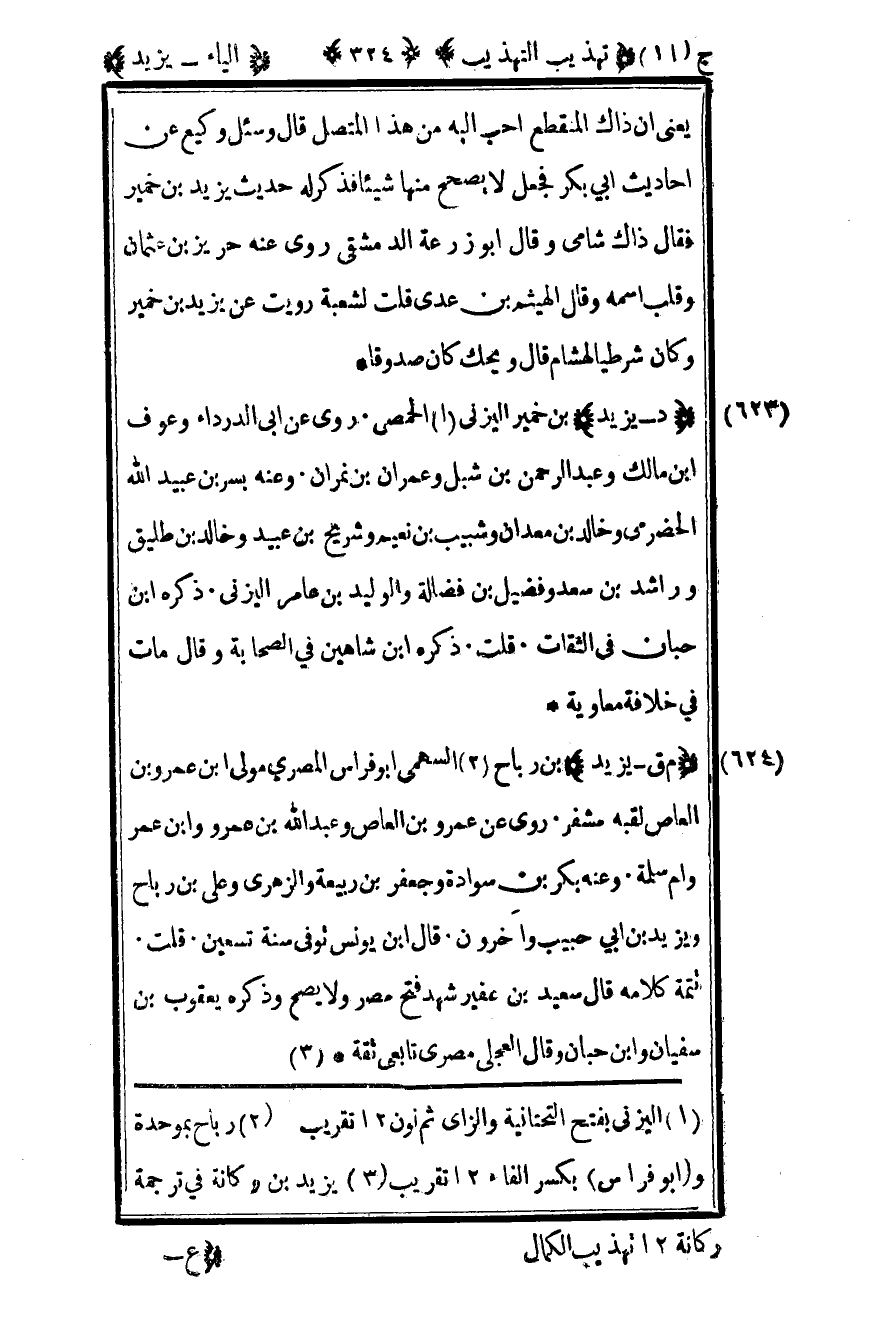 ج (١١) ﴿ تهذيب التهذيب ﴾ ﴿ ٣٢٤ ﴾ ﴿ الياء ـ يزيد ﴾
يعنى ان ذاك المنقطع احب اليه من هذا المتصل قال وسئل وكيع عن
احاديث ابي بكر فجعل لا يصحح منها شيئا فذكر له حديث يزيد بن خمير
فقال ذاك شامى و قال ابو زرعة الدمشقى روى عنه حريز بن عثمان
وقلب اسمه وقال الهيثم بن عدى قلت لشعبة رويت عن يزيد بن خمير
وكان شرطيا لهشام قال ويحك كان صدوقا *
(٦٢٣) ﴿ د ـ يزيد ﴾ بن خمير اليزنى (١) الحمصى ٠ روى عن ابى الدرداء وعوف
ابن مالك وعبدالرحمن بن شبل وعمران بن نمران ٠ وعنه بسر بن عبيد الله
الحضرمى وخالد بن معدان وشبيب بن نعيم وشريح بن عبيد وخالد بن طليق
وراشد بن سعد وفضيل بن فضالة والوليد بن عامر اليزنى ٠ ذكره ابن
حبان فى الثقات ٠ قلت ٠ ذكره ابن شاهين في الصحابة وقال مات
في خلافة معاوية *
(٦٢٤) ﴿ م ق ـ يزيد ﴾ بن رباح (٢) السهمى ابو فراس المصري مولى ابن عمرو بن
العاص لقبه مشفر ٠ روى عن عمرو بن العاص وعبدالله بن عمرو وابن عمر
وام سلمة ٠ وعنه بكر بن سوادة وجعفر بن ربيعة والزهرى وعلى بن رباح
ويزيد بن ابي حبيب وآخرون ٠ قال ابن يونس توفى سنة تسعين ٠ قلت ٠
تتمة كلامه قال سعيد بن عفير شهد فتح مصر ولا يصح وذكره يعقوب بن
سفيان وابن حبان وقال العجلى مصرى تابعى ثقة * (٣)
(١) اليزنى بفتح التحتانية والزاى ثم نون ١٢ تقريب (٢) رباح بموحدة
و (ابو فراس) بكسر الفاء ١٢ تقريب (٣) يزيد بن ركانة في ترجمة
ركانة ١٢ تهذيب الكمال ﴿ ع ـ